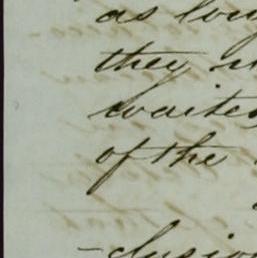 as long
they
waited
of the
-clusion